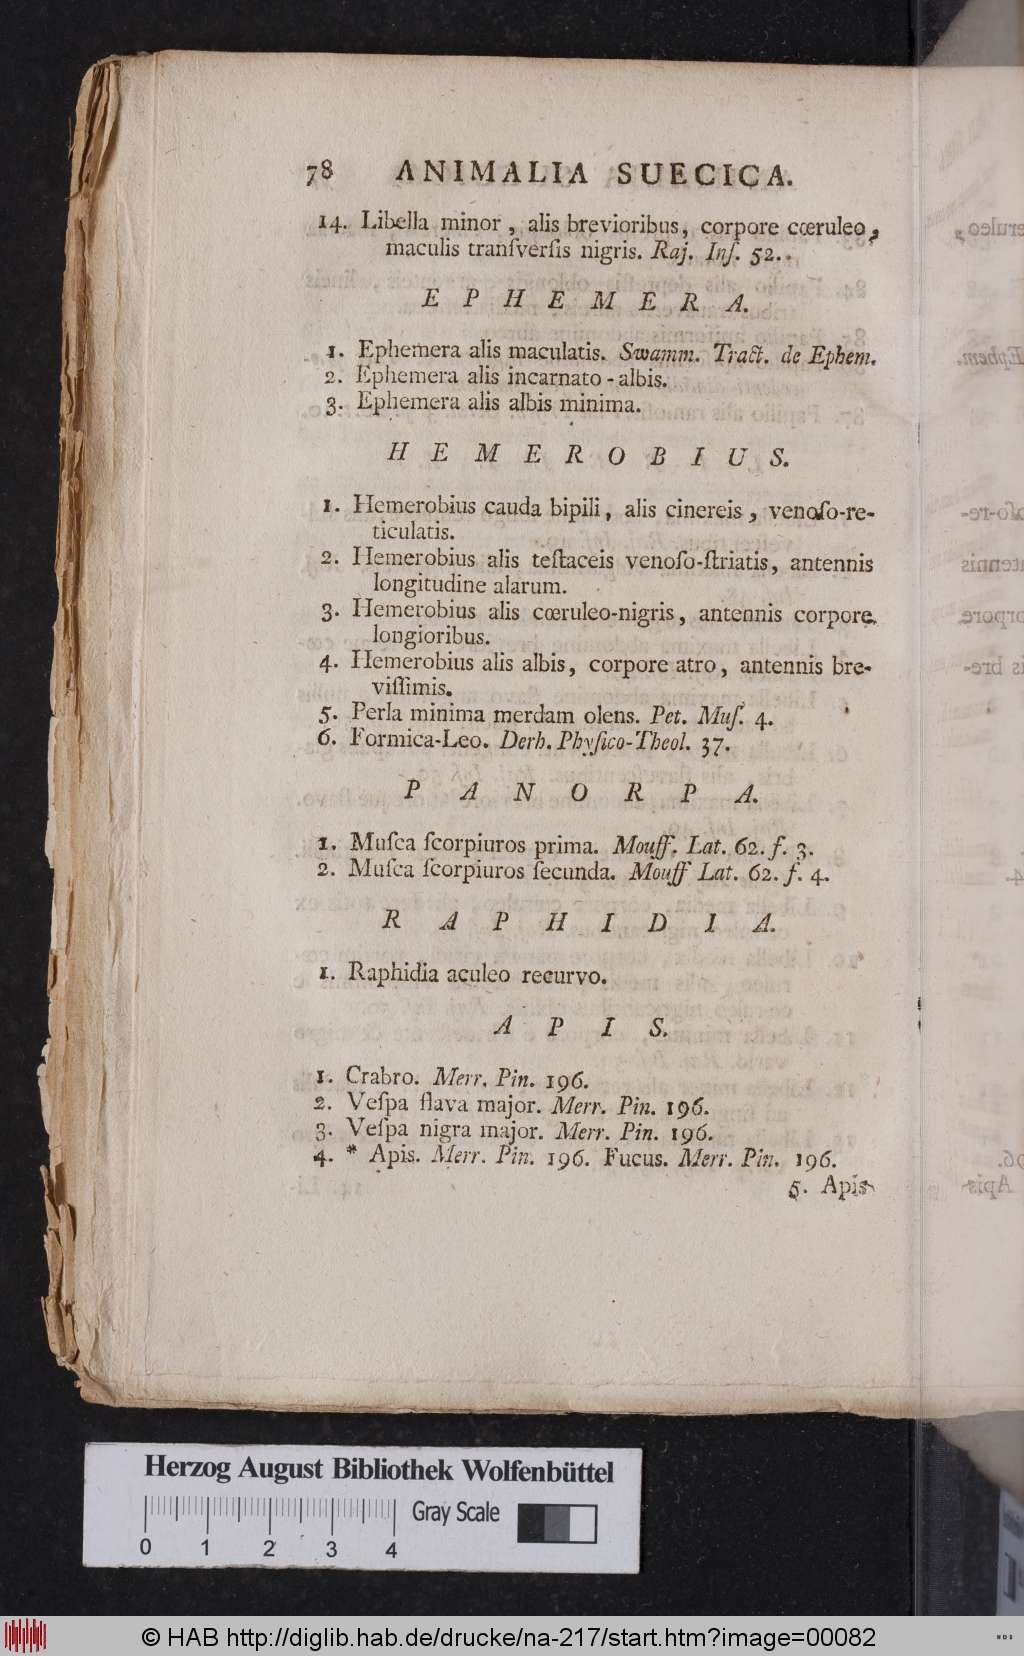 78 ANIMALIA SUECICA.
14. Libella minor, alis brevioribus, corpore cœruleo,
maculis tranſverſis nigris. Raj. Inſ. 52..
EPHEMERA.
1. Ephemera alis maculatis. Swamm. Tract. de Ephem.
2. Ephemera alis incarnato-albis.
3. Ephemera alis albis minima.
HEMEROBIUS.
1. Hemerobius cauda bipili, alis cinereis, venoſo-re-
ticulatis.
2. Hemerobius alis teſtaceis venoſo-ſtriatis, antennis
longitudine alarum.
3. Hemerobius alis cœruleo-nigris, antennis corpore
longioribus.
4. Hemerobius alis albis, corpore atro, antennis bre-
viſſimis.
5. Perla minima merdam olens. Pet. Muſ. 4.
6. Formica-Leo. Derh. Phyſico-Theol. 37.
PANORPA.
1. Muſca ſcorpiuros prima. Mouff. Lat. 62. f. 3.
2. Muſca ſcorpiuros ſecunda. Mouff Lat. 62. f. 4.
RAPHIDIA.
1. Raphidia aculeo recurvo.
APIS.
1. Crabro. Merr. Pin. 196.
2. Veſpa flava major. Merr. Pin. 196.
3. Veſpa nigra major. Merr. Pin. 196.
4. * Apis. Merr. Pin. 196. Fucus. Merr. Pin. 196.
5. Apis
Herzog August Bibliothek Wolfenbüttel
Gray Scale
0 1 2 3 4
© HAB http://diglib.hab.de/drucke/na-217/start.htm?image=00082